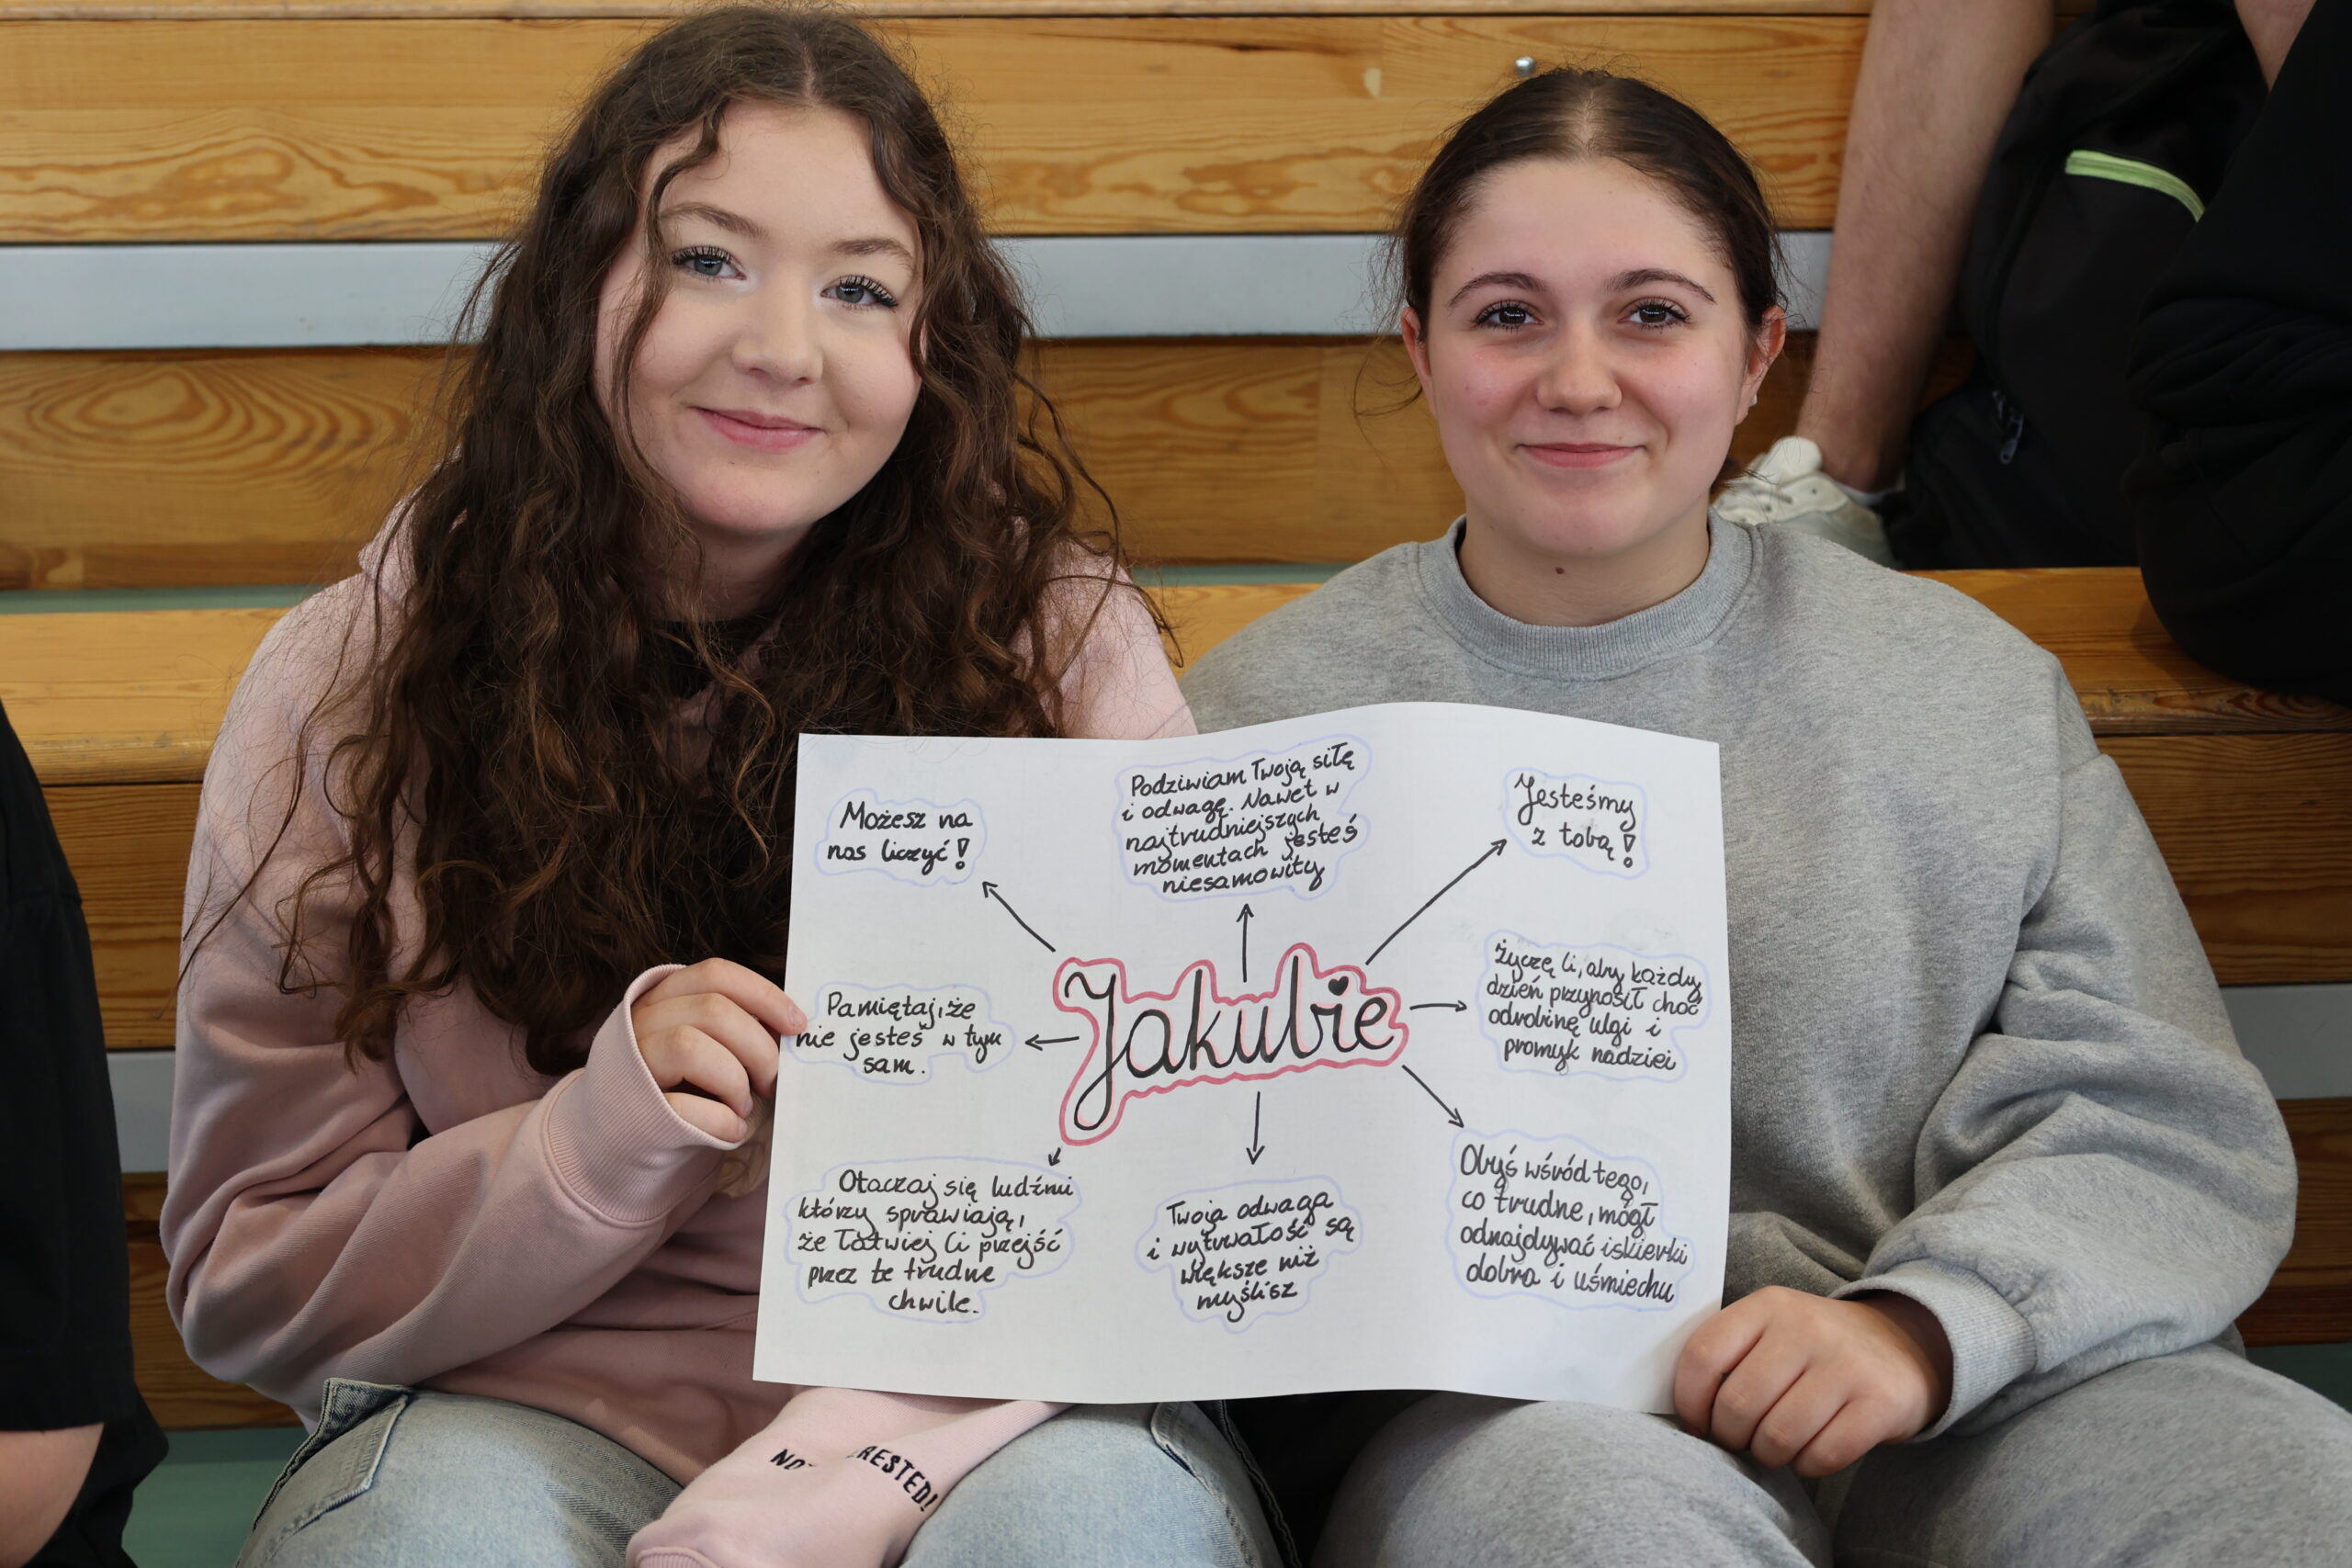 Możesz na
nas liczyć!
Podziwiam Twoją siłę
i odwagę. Nawet w
najtrudniejszych
momentach jesteś
niesamowity
Jesteśmy
z tobą!
Pamiętaj, że
nie jesteś w tym
sam.
Jakubie
Życzę Ci, aby każdy
dzień przynosił choć
odrobinę ulgi i
promyk nadziei
Otaczaj się ludźmi
którzy sprawiają,
że łatwiej Ci przejść
przez te trudne
chwile.
Twoja odwaga
i wytrwałość są
większe niż
myślisz
Obyś wśród tego,
co trudne, mógł
odnajdywać iskierki
dobra i uśmiechu